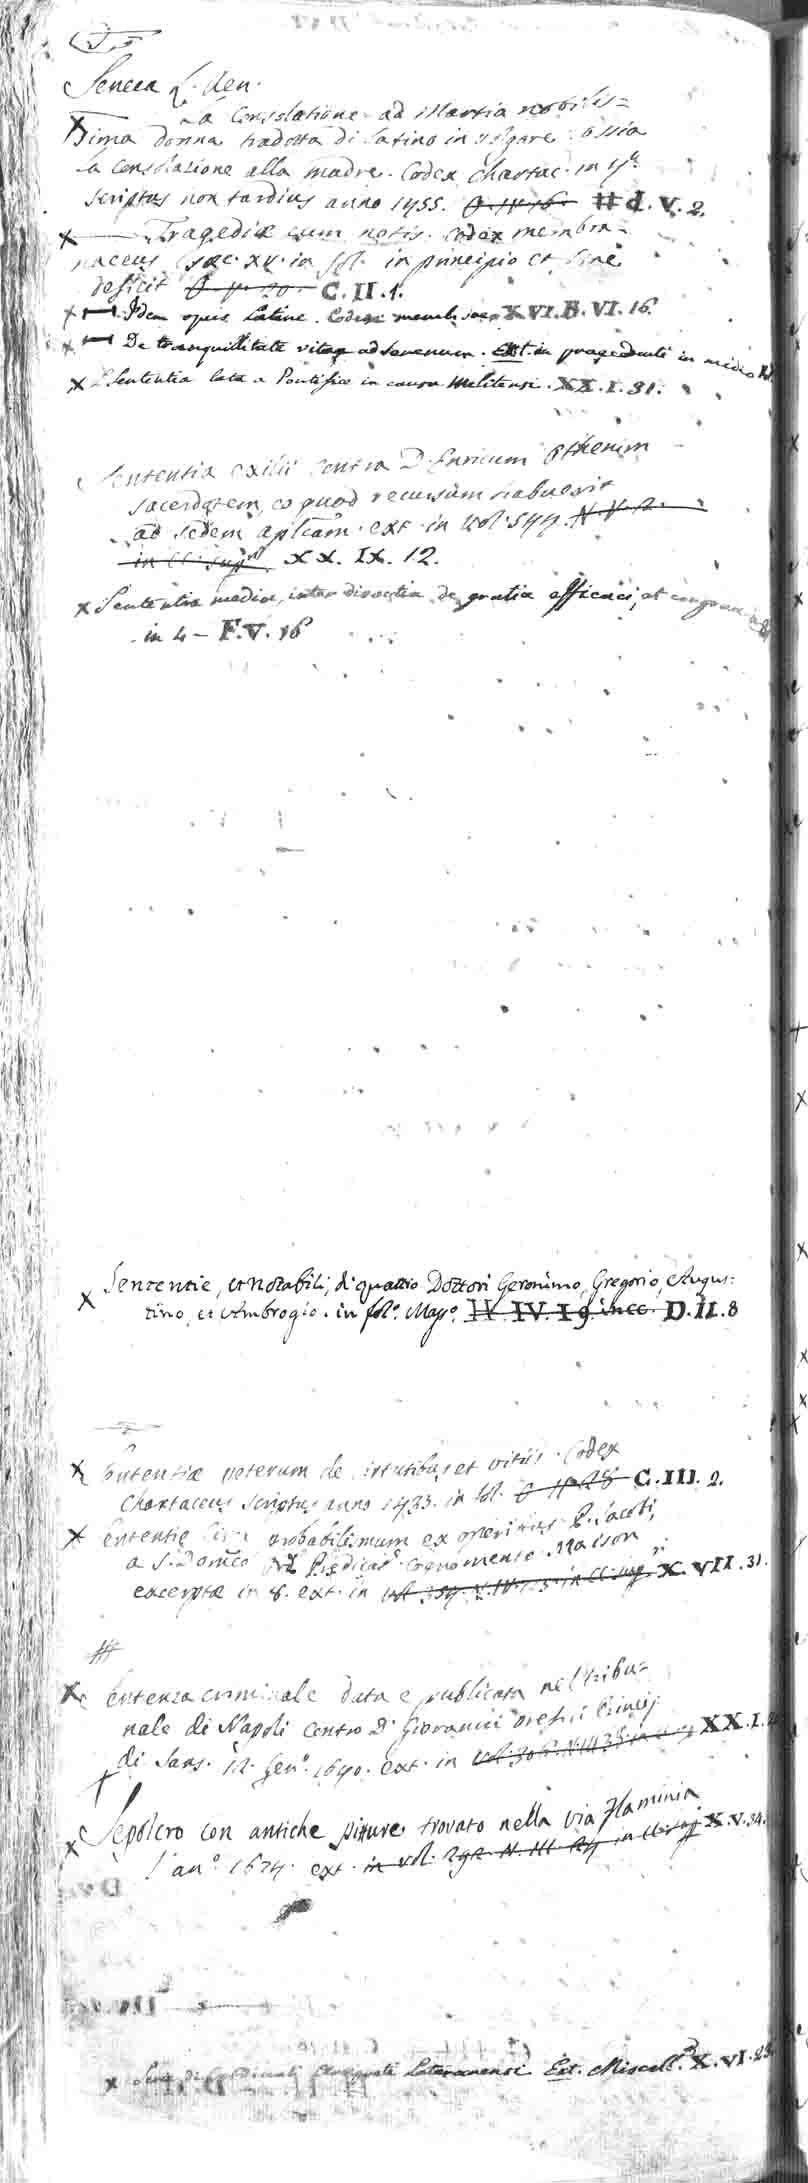 Seneca L. Aen.
La Consolatione ad Martia nobilis=
sima donna tradotta di latino in volgare ossia
la Consolazione alla madre. Codex chartac. in 4°
scriptus non tardius anno 1455. H d. V. 2.
x — Tragediæ cum notis. Codex membra=
naceus sæc. XV. in fol. in principio et fine
deficit C. II. 1.
x — Idem opus Latine. Codex memb. saec. XVI. B. VI. 16.
x — De tranquillitate vitae ad Serenum. Ext. in praecedenti in medio
x Sententia lata a Pontifice in causa Melitensi. XX. I. 31.
Sententia exilii contra D. Enricum
sacerdotem, eo quod recursum habuerit
ad sedem aplicam. ext. in vol. 544. N. V. 2.
in cl. XX. IX. 12.
x Sententia media, inter de gratia efficaci, et congrua
in 4 – F. V. 16
x Sentencie, et Notabili, di quattro Dottori Geronimo, Gregorio, Augus:
tino, et Ambrogio. in fol.° Mag.° IV. D. II. 8
x Sententiæ veterum de virtutibus et vitiis. Codex
Chartaceus scriptus anno 1433. in fol. C. III. 2.
x Sententie circa probabilismum ex operibus P. Jacobi,
a S. Domco Prædicat. cognomento
excerptæ in 8. ext. in X. VII. 31.
x Sentenza criminale data e publicata nel tribu=
nale di Napoli contro D. Giovanni Orefici Princip.
di Sans. 12. Gen.° 1640. ext. in XX. I.
x Sepolcro con antiche pitture trovato nella via Flaminia
l'an.° 1674. ext. in vol. 292. N. III. X. V. 34.
x Lateranensi Ext. Miscell. X. VI.